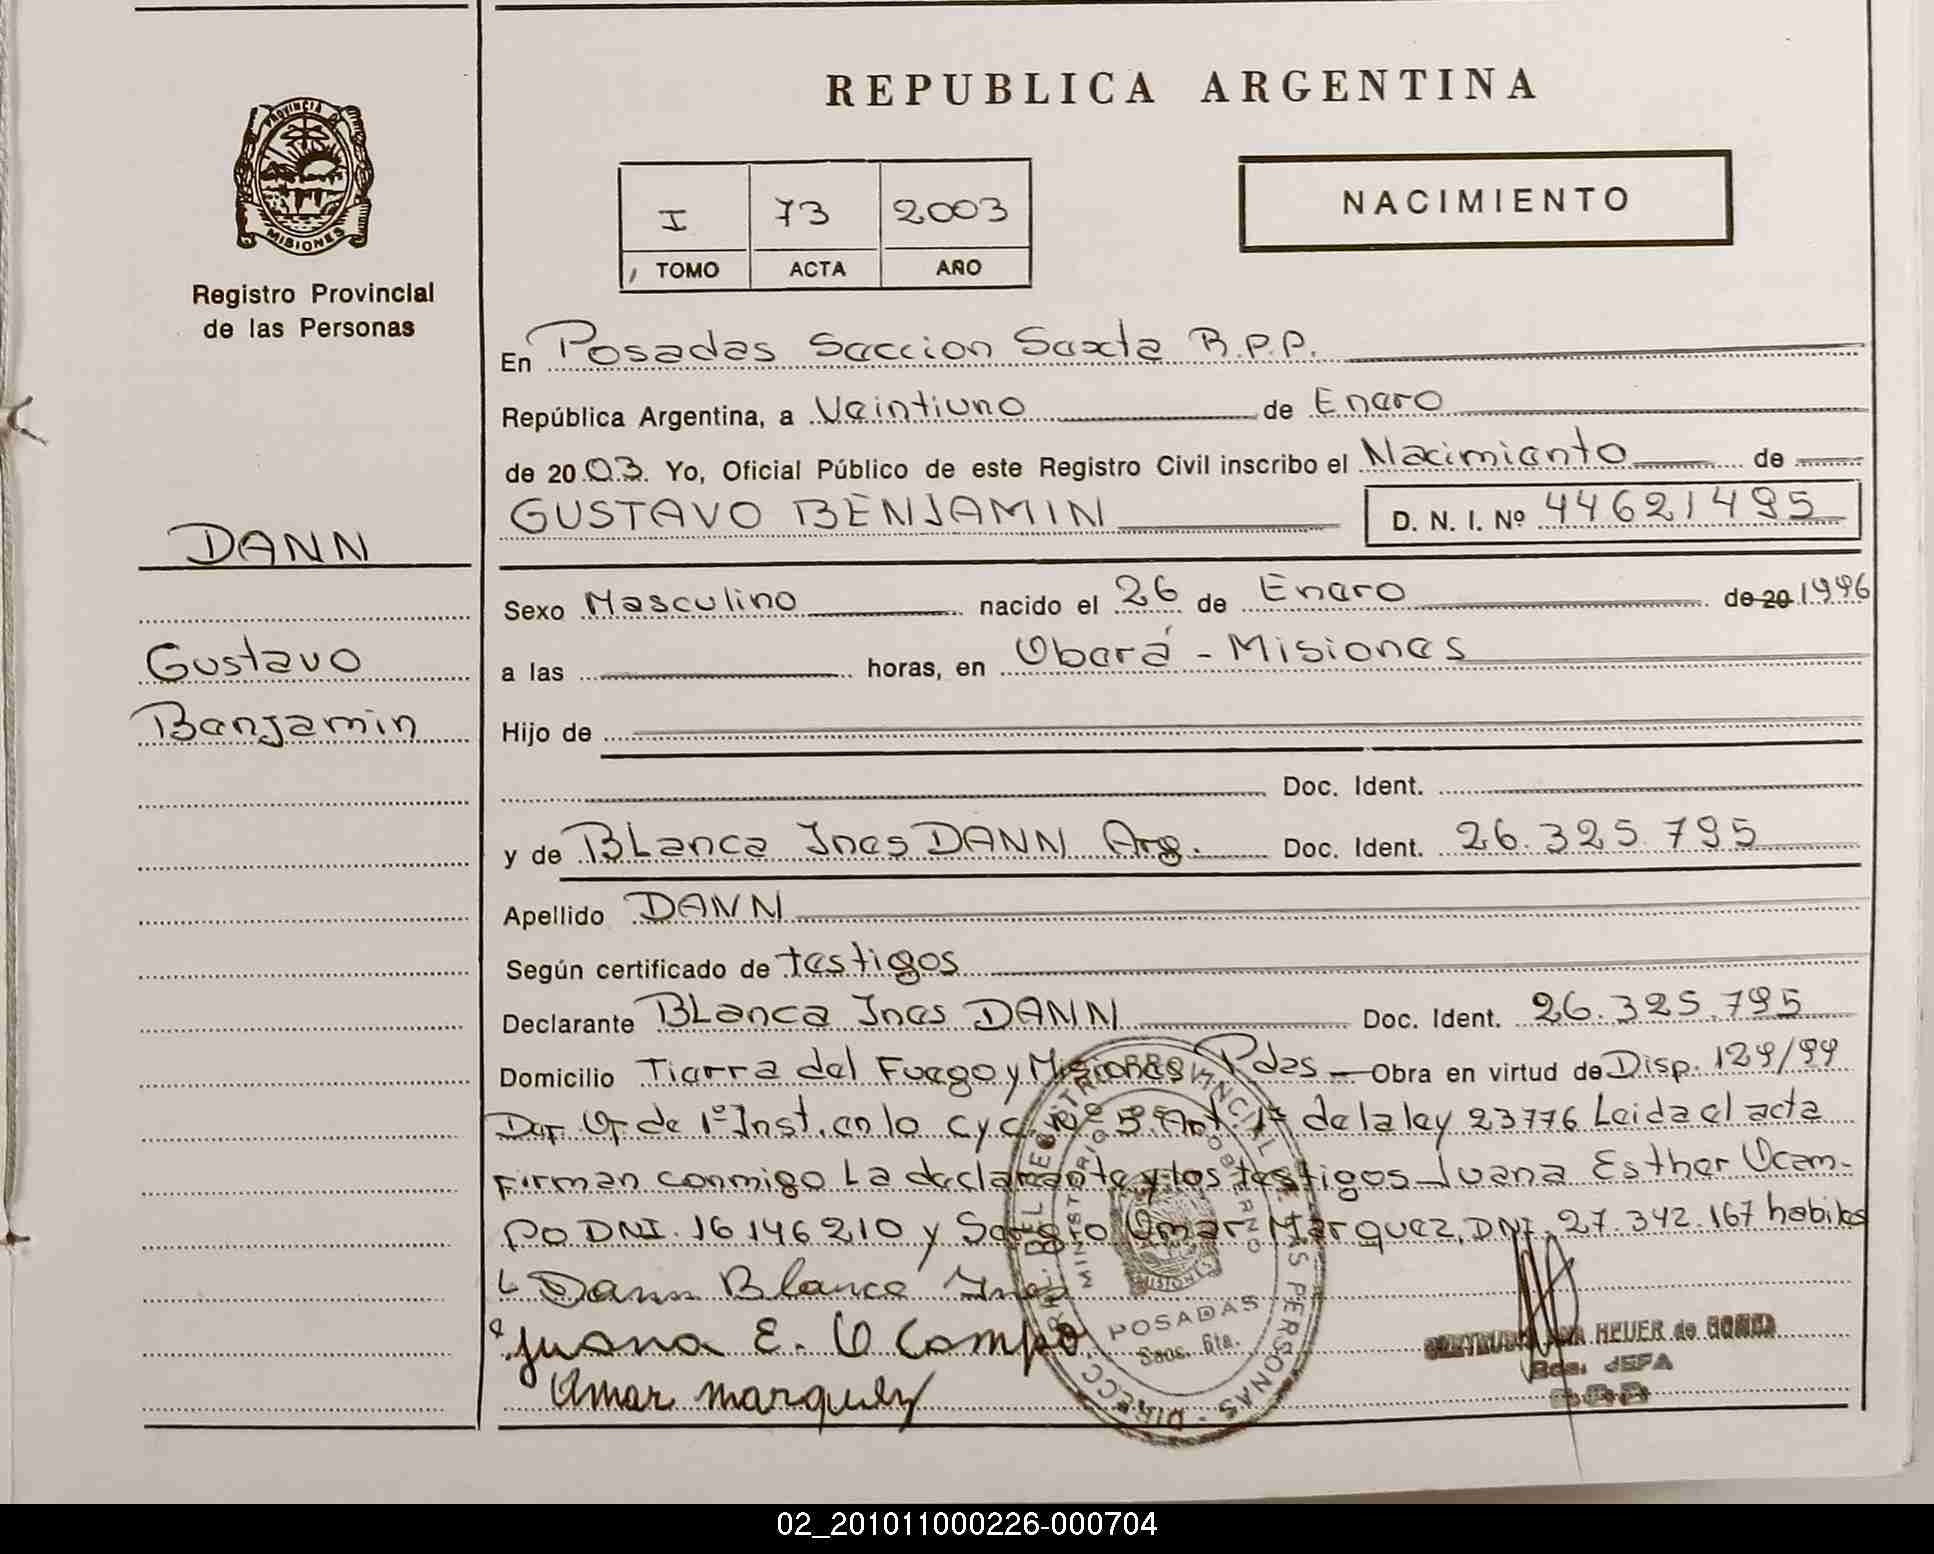 REPUBLICA ARGENTINA
PROVINCIA D
MISIONES
Registro Provincial
de las Personas
I 73 2003
TOMO ACTA AÑO
NACIMIENTO
En Posadas Seccion Sexta R.P.P.
República Argentina, a Veintiuno de Enero
de 2003. Yo, Oficial Público de este Registro Civil inscribo el Nacimiento de
GUSTAVO BENJAMIN D. N. I. Nº 44621495
DANN
Gustavo
Benjamin
Sexo Masculino nacido el 26 de Enero de 20 1996
a las horas, en Oberá - Misiones
Hijo de
Doc. Ident.
y de Blanca Ines DANN Arg. Doc. Ident. 26.325.795
Apellido DANN
Según certificado de testigos
Declarante Blanca Ines DANN Doc. Ident. 26.325.795
Domicilio Tierra del Fuego y Misiones Pdas Obra en virtud de Disp. 129/99
de 1º Inst. en lo C y C. Nº 5. Art. 1º de la ley 23776 Leida el acta
Firman conmigo La declarante y los testigos Juana Esther Ocam-
po DNI. 16146210 y Sergio Omar Marquez, DNI. 27.342.167 habiles
Dann Blanca Ines
Juana E. Ocampo
Omar Marquez
POSADAS
Secc. 6ta.
HEUER de
JEFA
02_201011000226-000704